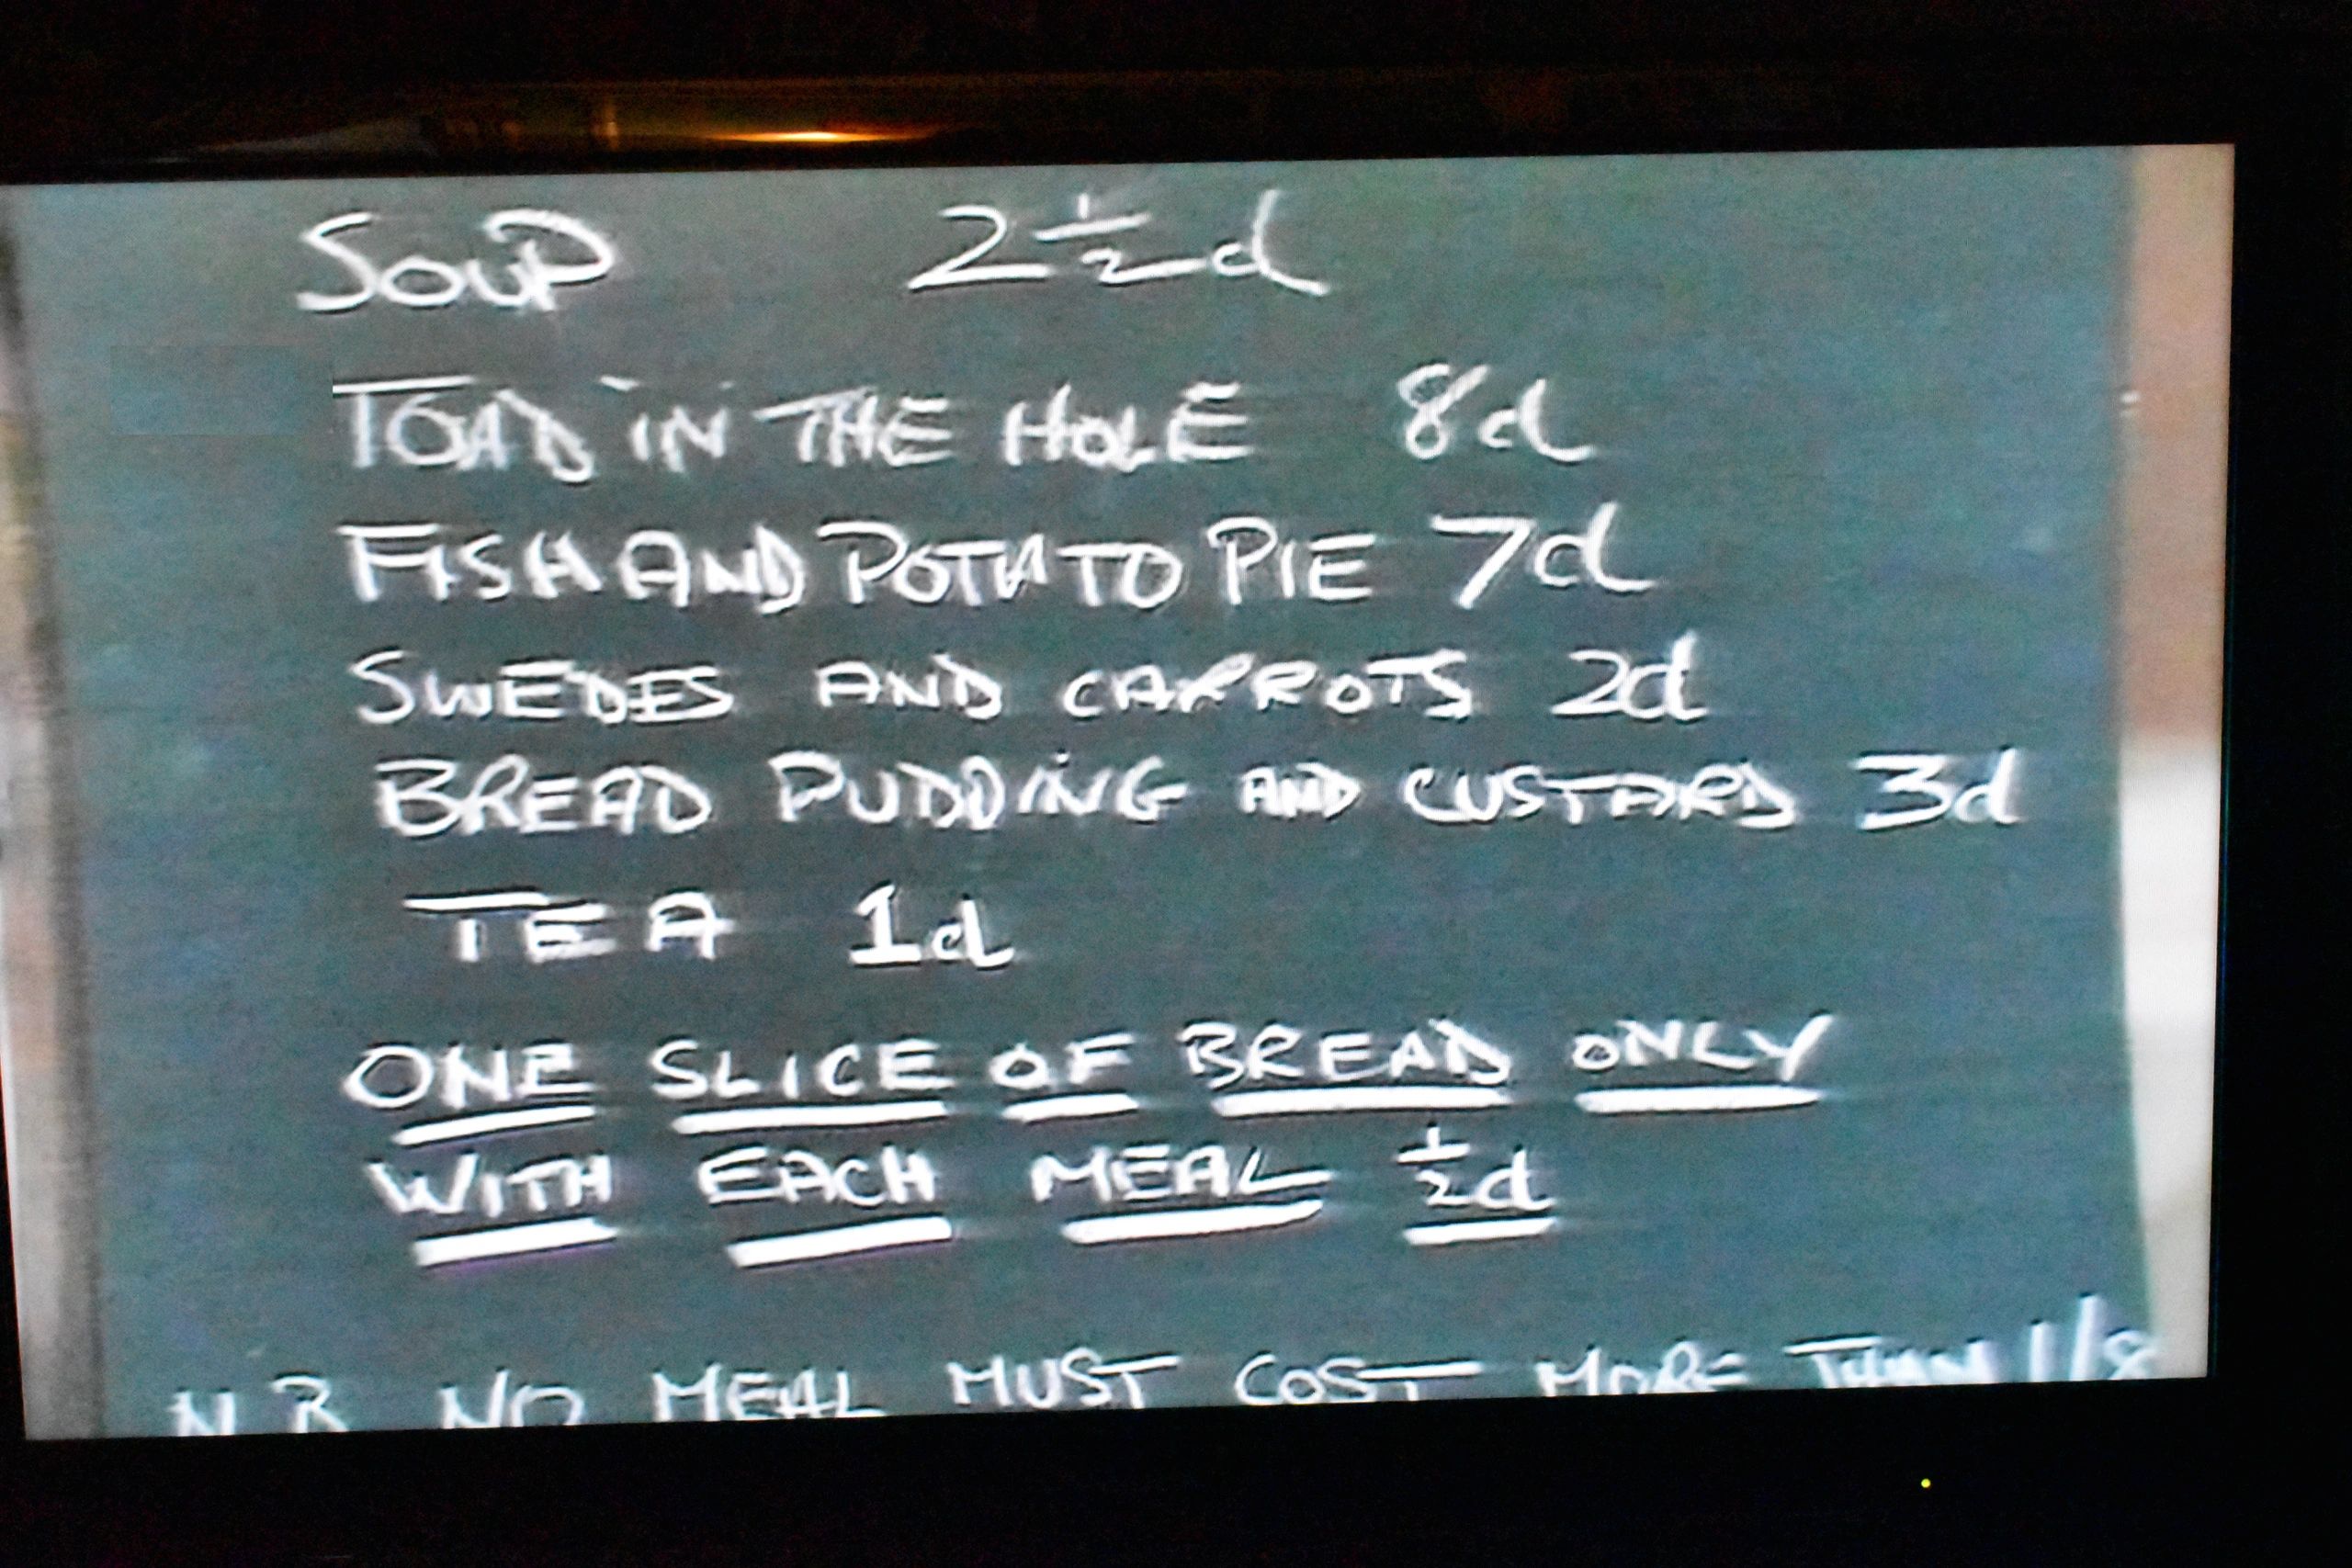 SOUP 2½d
TOAD IN THE HOLE 8d
FISH AND POTATO PIE 7d
SWEDES AND CARROTS 2d
BREAD PUDDING AND CUSTARD 3d
TEA 1d
ONE SLICE OF BREAD ONLY
WITH EACH MEAL ½d
N.B. NO MEAL MUST COST MORE THAN 1/8